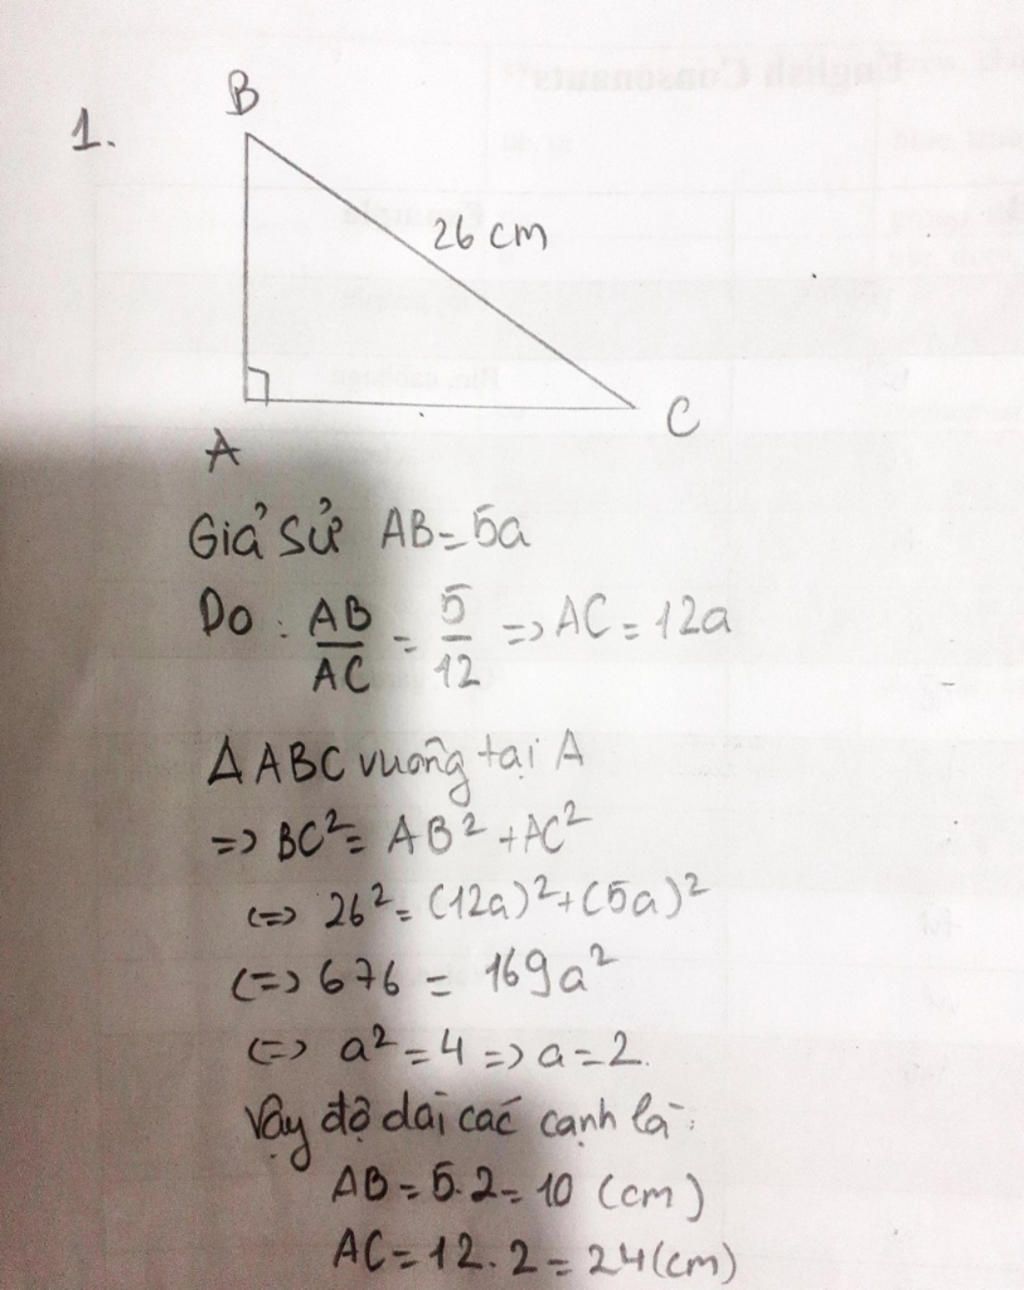 1.
B
26 cm
A
C
Giả sử AB = 5a
Do : AB/AC = 5/12 => AC = 12a
Δ ABC vuông tại A
=> BC² = AB² + AC²
<=> 26² = (12a)² + (5a)²
<=> 676 = 169a²
<=> a² = 4 => a = 2.
Vậy độ dài các cạnh là:
AB = 5.2 = 10 (cm)
AC = 12.2 = 24 (cm)
English Consonants